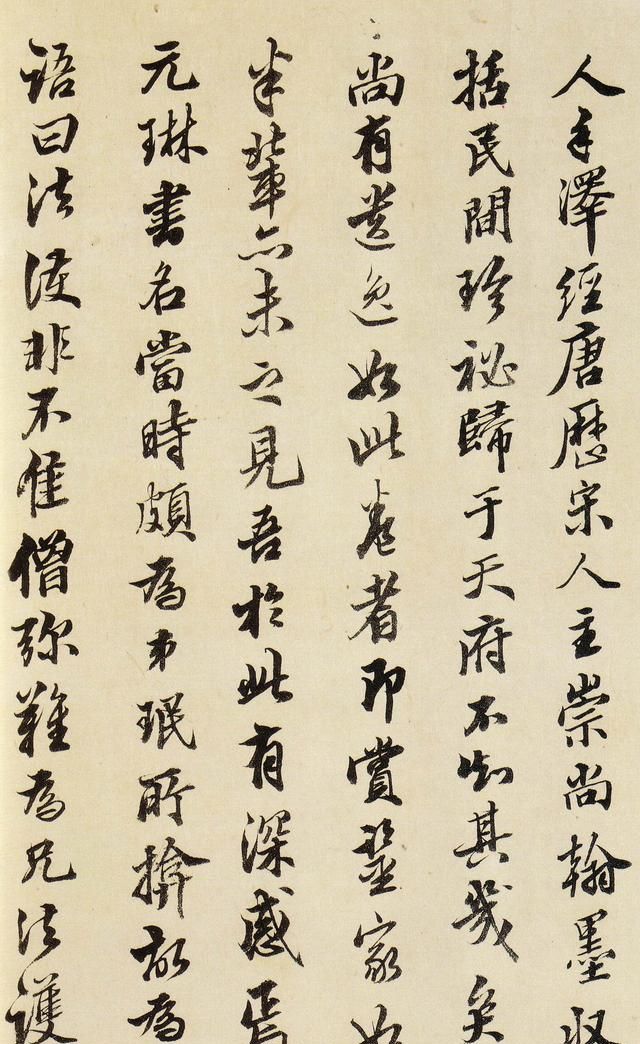 人手澤經唐歷宋人主崇尚翰墨收
括民間珍祕歸于天府不知其幾矣
尚有遺逸如此卷者即賞鑒家如
米輩亦未之見吾於此有深感焉
元琳書名當時頗為弟珉所揜故為
語曰法護非不佳僧彌難為兄法護